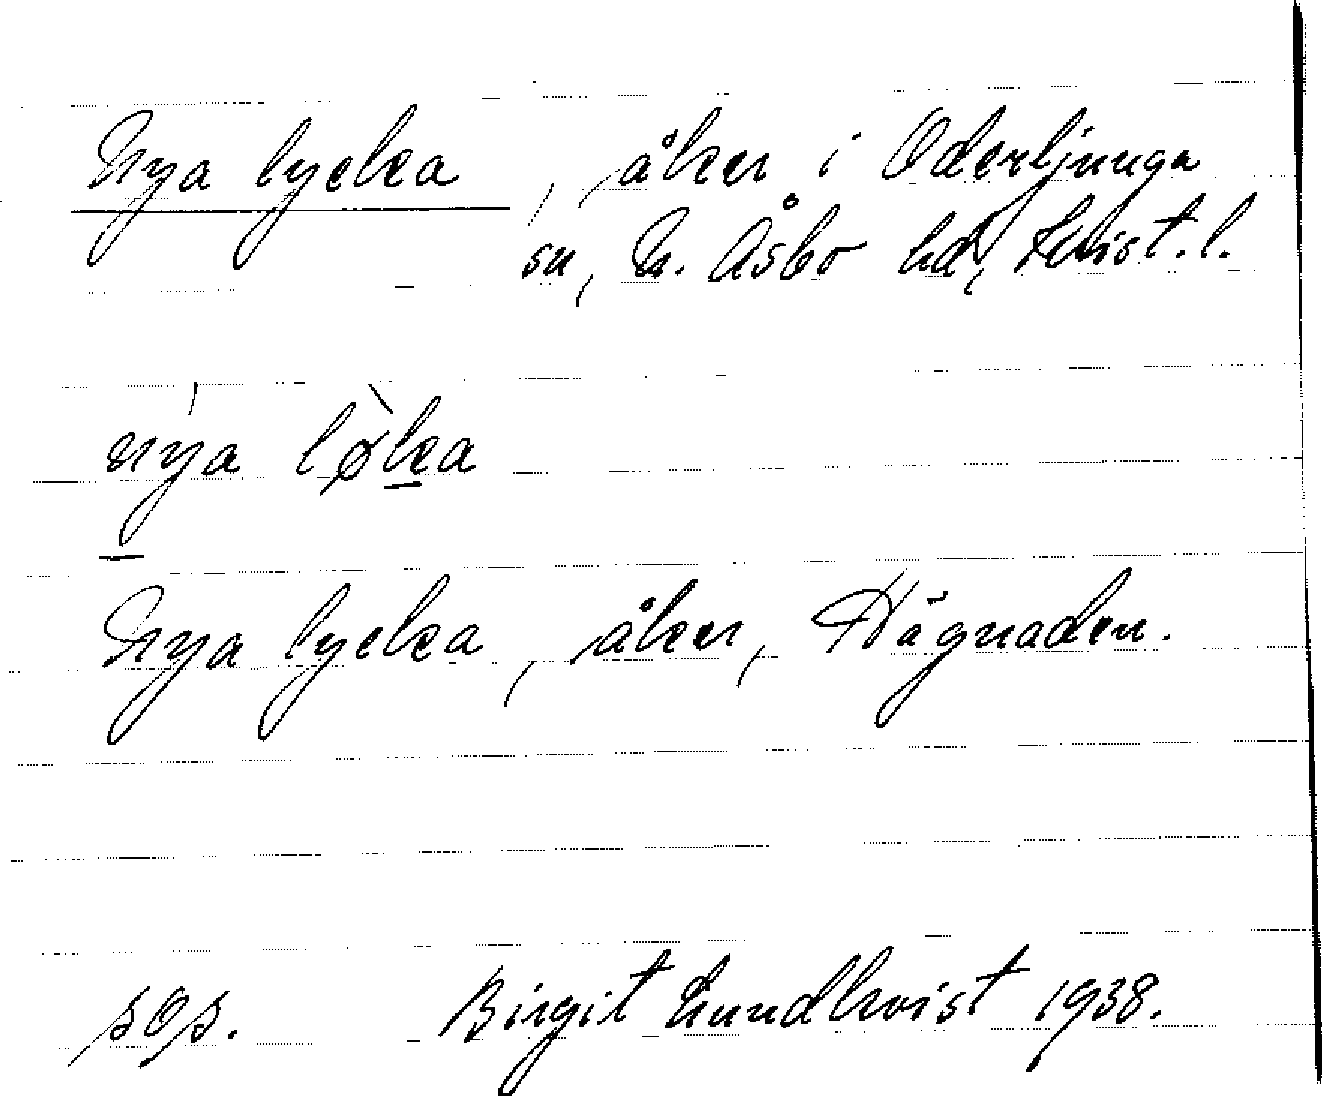 Nya lycka, åker i Oderljunga
sn, N. Åsbo hd, Krist. l.
nýa lø̀ka
Nya lycka, åker, Hägnaden.
sos. Birgit Lundkvist 1938.